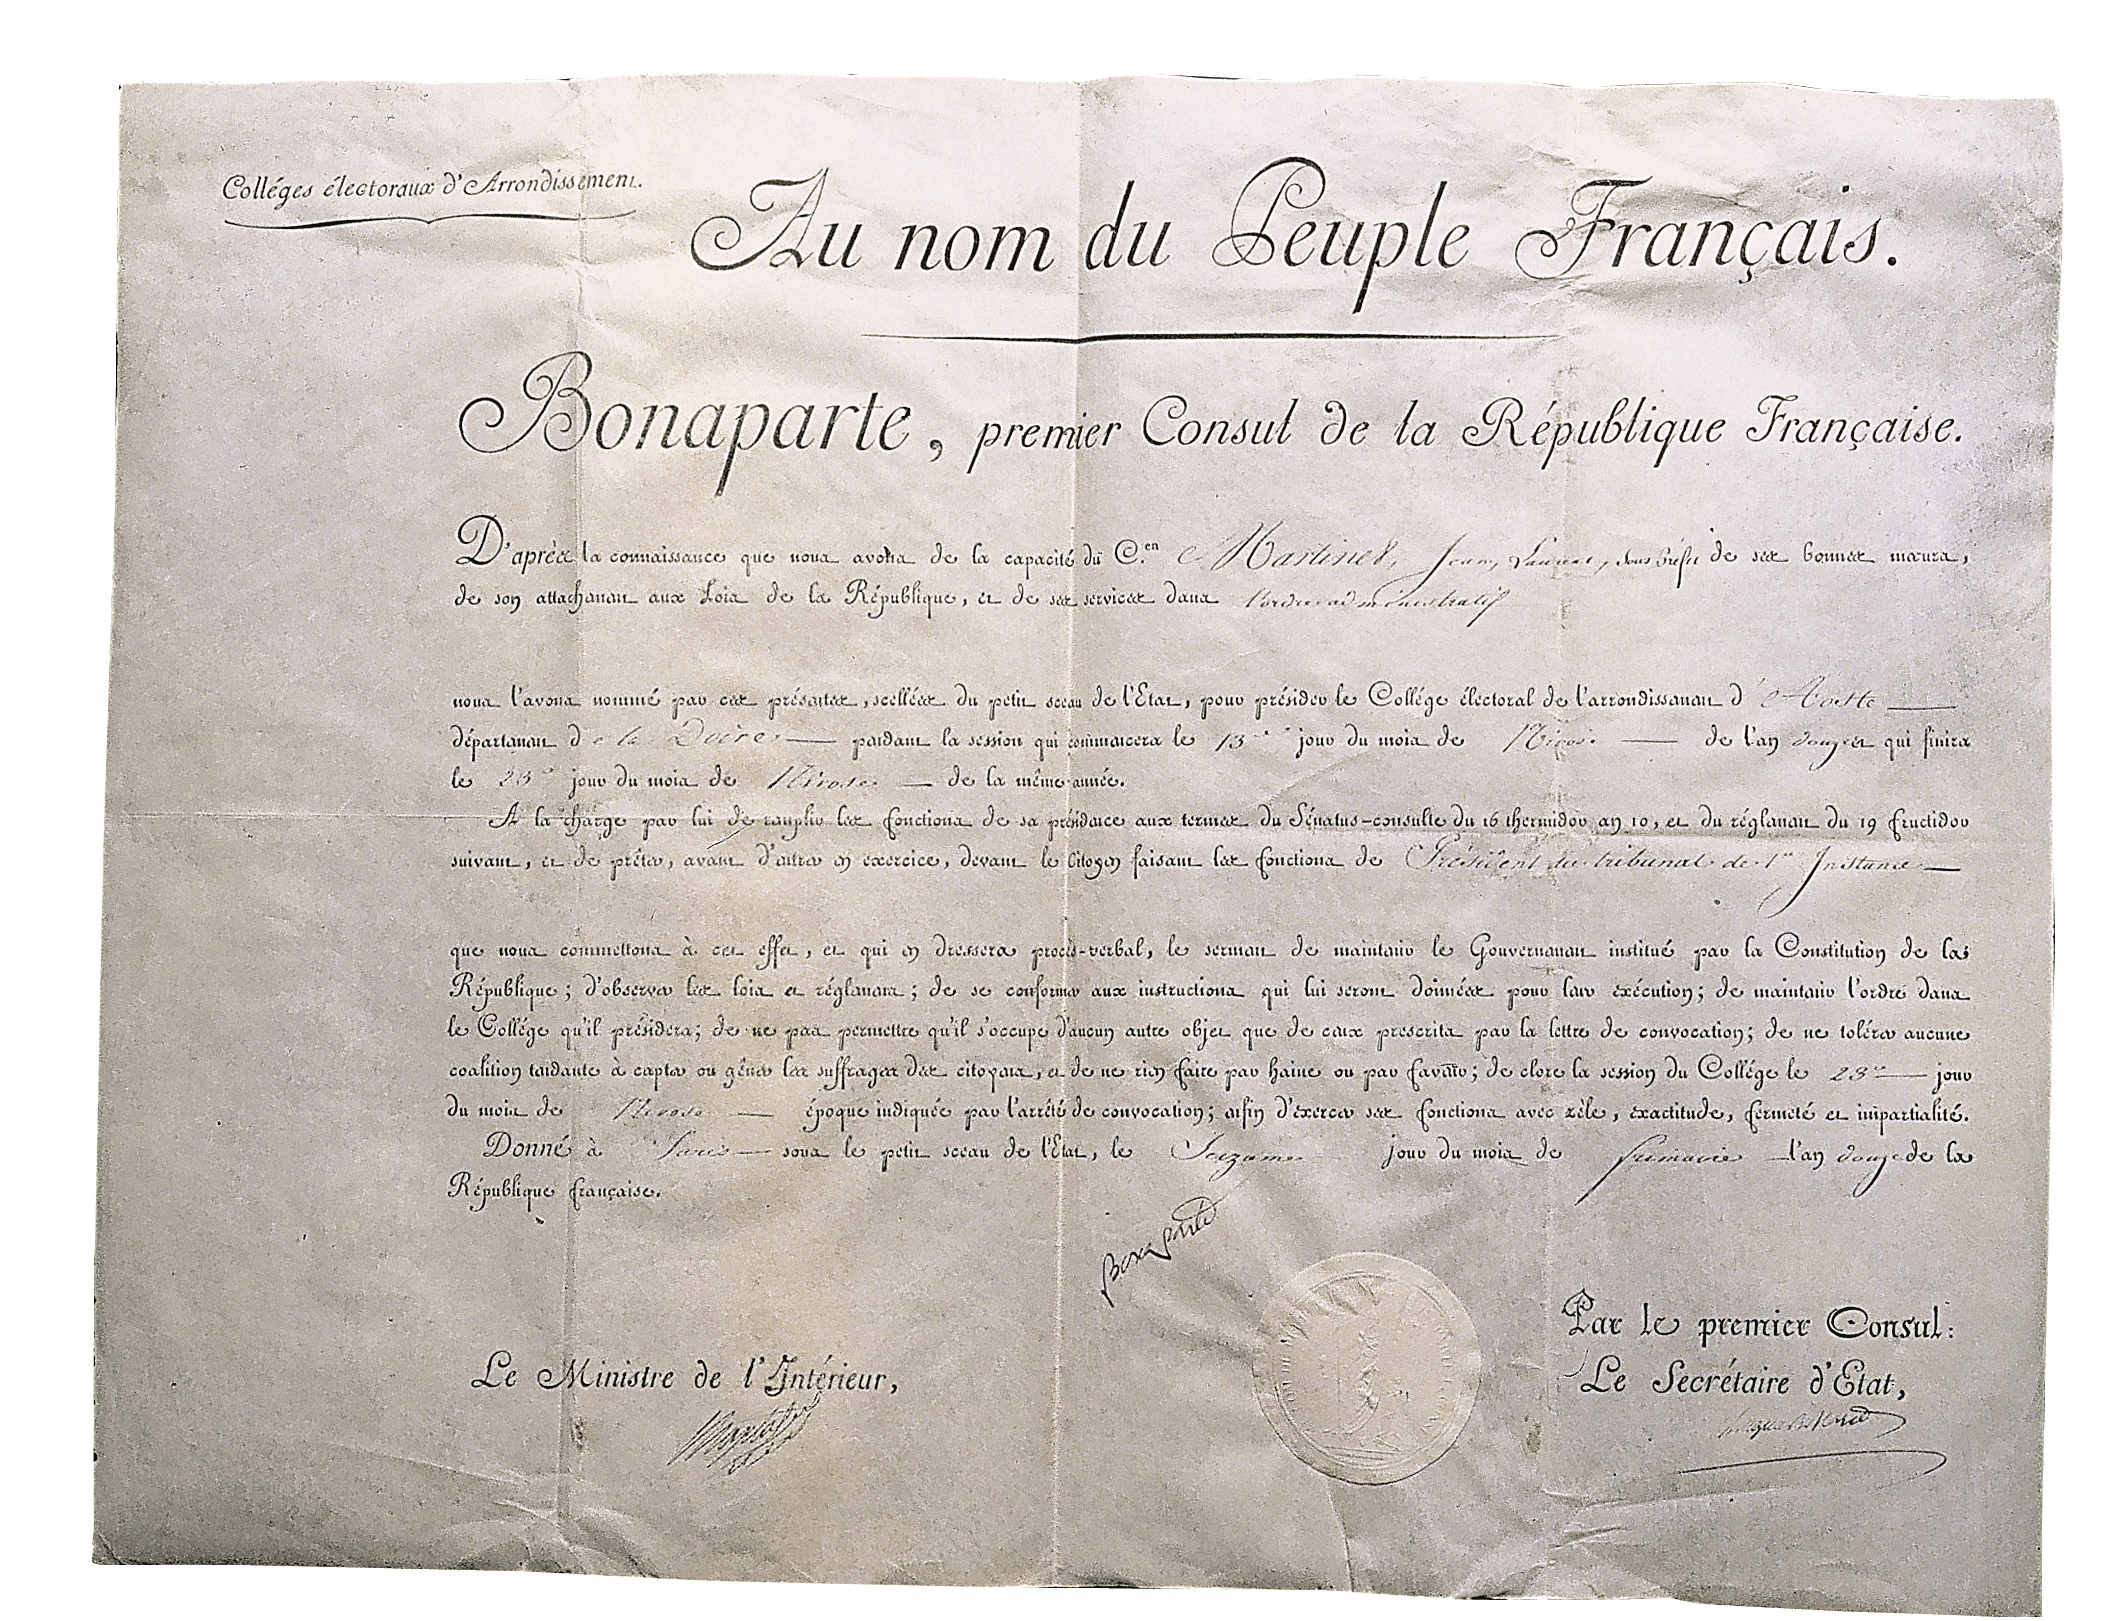 Colléges électoraux d'Arrondissement.
Au nom du Peuple Français.
Bonaparte, premier Consul de la République Française.
D'après la connaissance que nous avons de la capacité du C.en Martinet, Jean, Laurent, sous préfet de ses bonnes mœurs,
de son attachement aux Loix de la République, et de ses services dans l'ordre administratif
nous l'avons nommé par ces présentes, scellées du petit sceau de l'Etat, pour présider le Collége électoral de l'arrondissement d'Aoste
département de la Doire pendant la session qui commencera le 13 jour du mois de Nivose de l'an douze et qui finira
le 23 jour du mois de Nivose de la même année.
A la charge par lui de remplir les fonctions de sa présidence aux termes du Sénatus-consulte du 16 thermidor an 10, et du réglement du 19 fructidor
suivant, et de prêter, avant d'entrer en exercice, devant le Citoyen faisant les fonctions de Président du tribunal de 1re Instance
que nous commettons à cet effet, et qui en dressera procès-verbal, le serment de maintenir le Gouvernement institué par la Constitution de la
République; d'observer les loix et réglemens; de se conformer aux instructions qui lui seront données pour leur exécution; de maintenir l'ordre dans
le Collége qu'il présidera; de ne pas permettre qu'il s'occupe d'aucun autre objet que de ceux prescrits par la lettre de convocation; de ne tolérer aucune
coalition tendante à capter ou gêner les suffrages des citoyens, et de ne rien faire par haine ou par faveur; de clore la session du Collége le 23 jour
du mois de Nivose époque indiquée par l'arrêté de convocation; enfin d'exercer ses fonctions avec zèle, exactitude, fermeté et impartialité.
Donné à Paris sous le petit sceau de l'Etat, le Seizième jour du mois de frimaire l'an douze de la
République française.
Bonaparte
Par le premier Consul:
Le Ministre de l'Intérieur,
Le Secrétaire d'Etat,